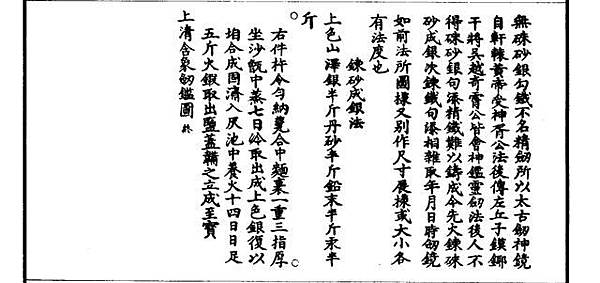 無硃砂銀勾鐵不名精劒所以太古劒神鏡
自軒轅黃帝受神胥公法後傳左丘子鏌鎁
干將吳越奇霄公皆會神鑑靈劒法後人不
得硃砂銀勾湊精鐵難以鑄成今先火鍊硃
砂成銀次鍊鐵勾湊相雜取年月日時劒鏡
如前法所圖樣又別作尺寸展樣或大小各
有法度也
鍊砂成銀法
上色山澤銀半斤丹砂半斤鉛末半斤汞半
斤
右件杵令勻納甆合中麵裹一重三指厚
坐沙甑中蒸七日冷取出成上色銀復以
坩合成固濟入灰池中養火十四日日足
五斤火鍜取出鹽蓋鞴之立成至寶
上清含象劒鑑圖 終